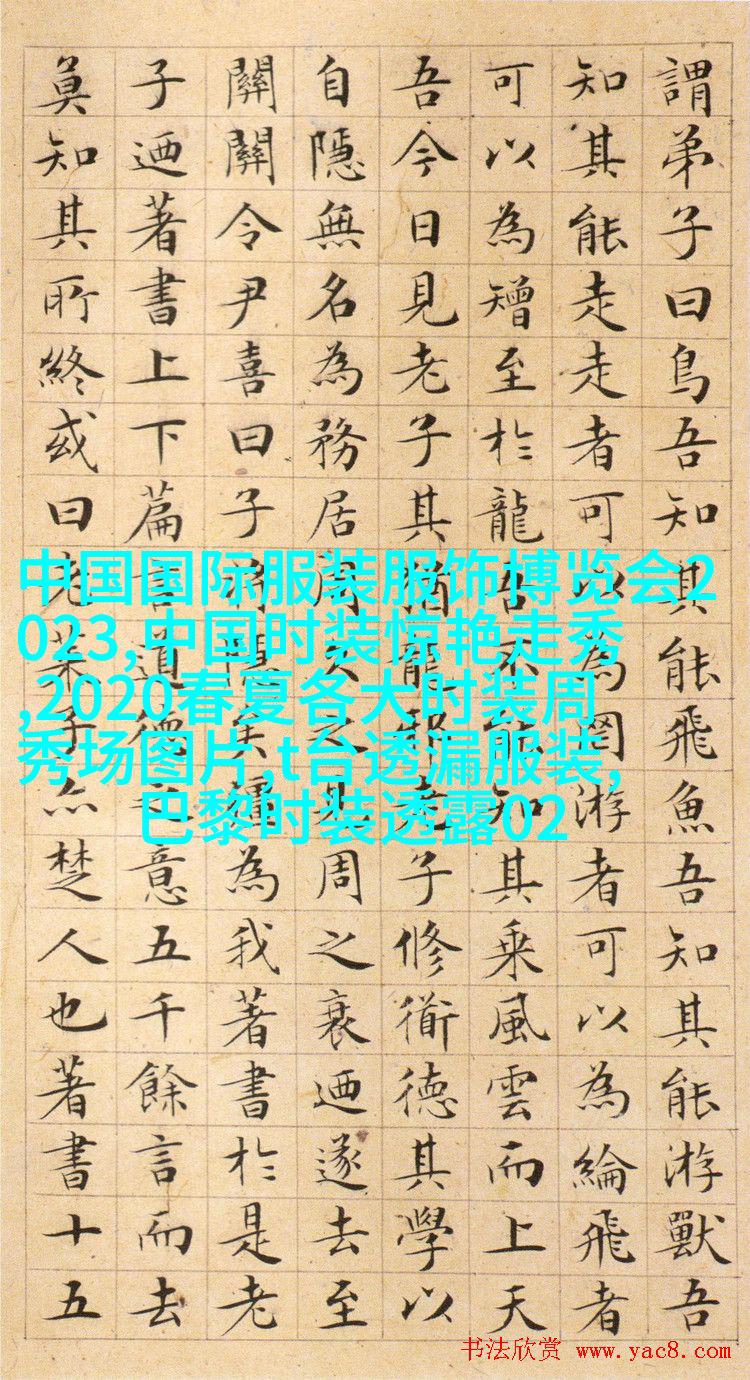 謂弟子曰鳥吾知其能飛魚吾知其能游獸吾
知其能走走者可以為罔游者可以為綸飛者
可以為矰至於龍吾不能知其乘風雲而上天
吾今日見老子其猶龍邪老子修衜德其學以
自隱無名為務居周久之見周之衰迺遂去至
關關令尹喜曰子將隱矣彊為我著書於是老
子迺著書上下篇言道德之意五千餘言而去
莫知其所終或曰老萊子亦楚人也著書十五
中国国际服装服饰博览会2
023,中国时装惊艳走秀
,2020春夏各大时装周
秀场图片,t台透漏服装,
巴黎时装透露02
书法欣赏 www.yac8.com